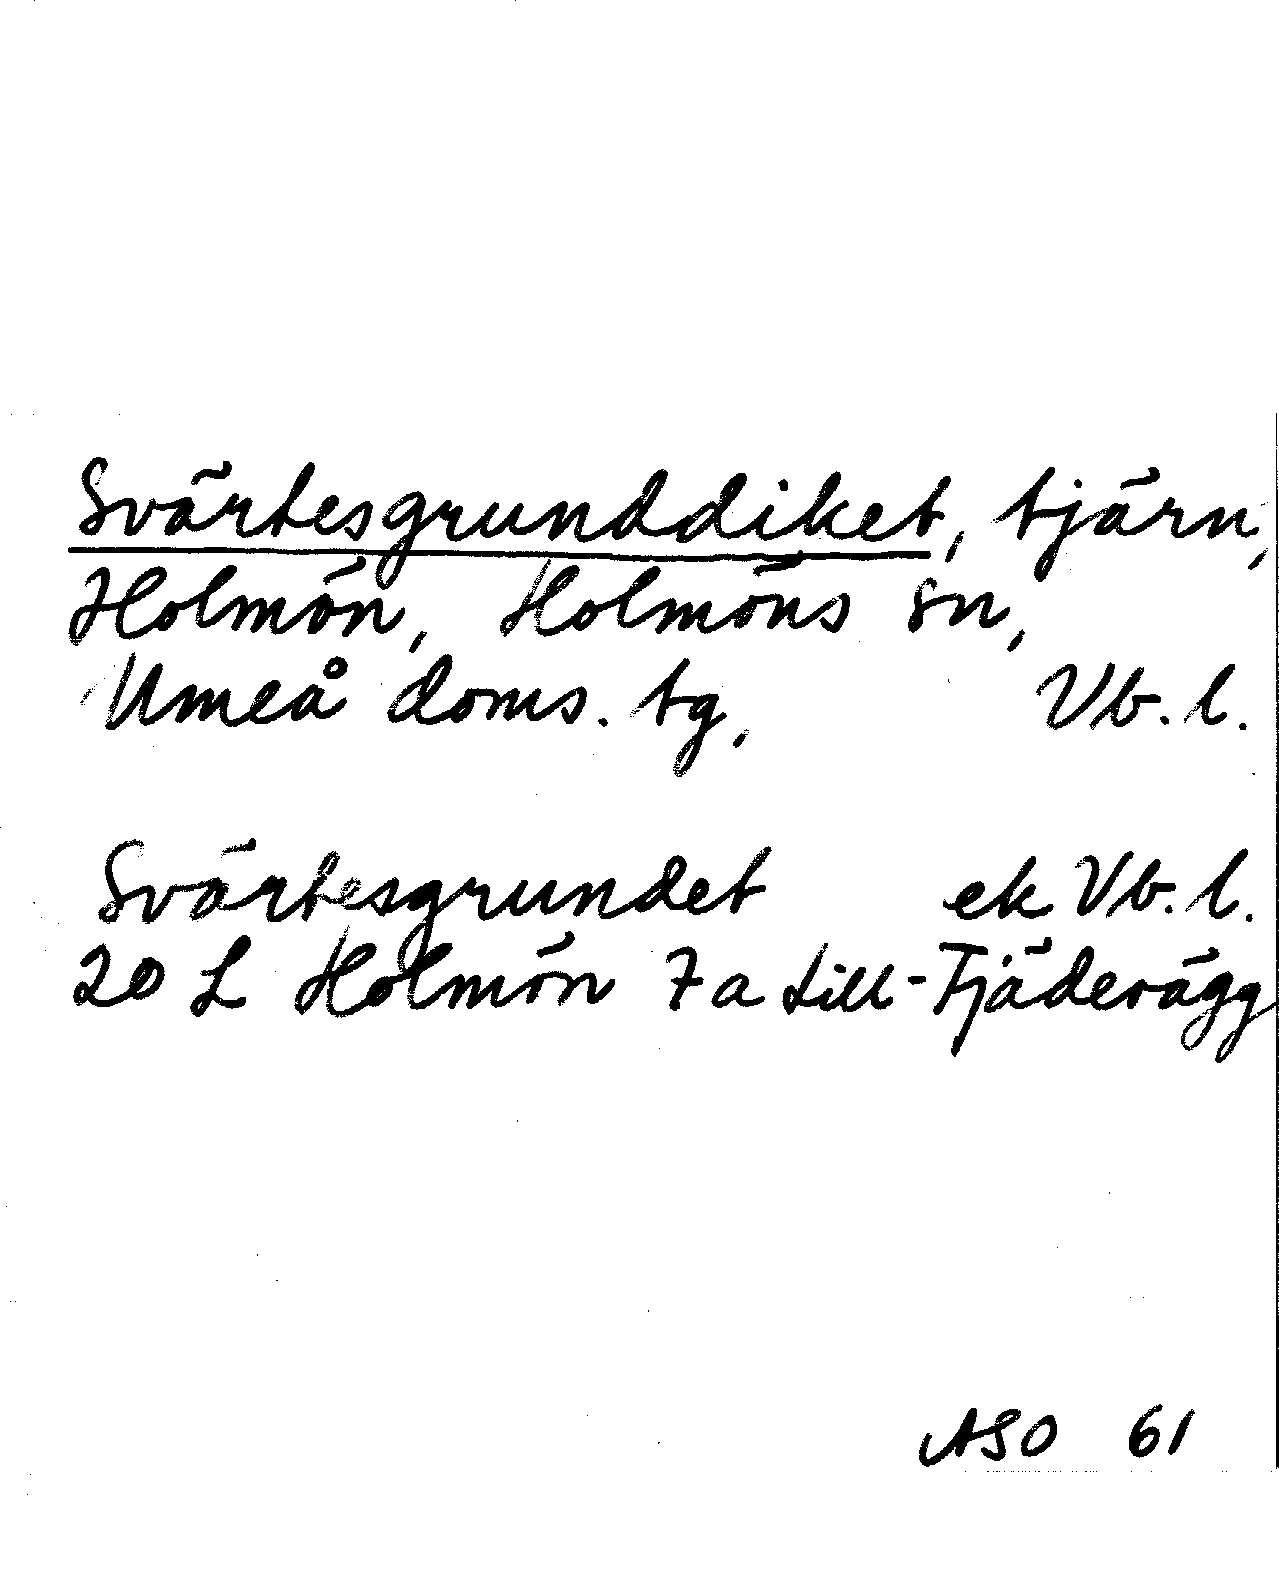 Svärtesgrunddiket, tjärn,
Holmön, Holmöns sn,
Umeå doms. tg, Vb. l.
Svärtesgrundet ek Vb. l.
20 L Holmön 7a Lill-Fjäderägg
ASO 61